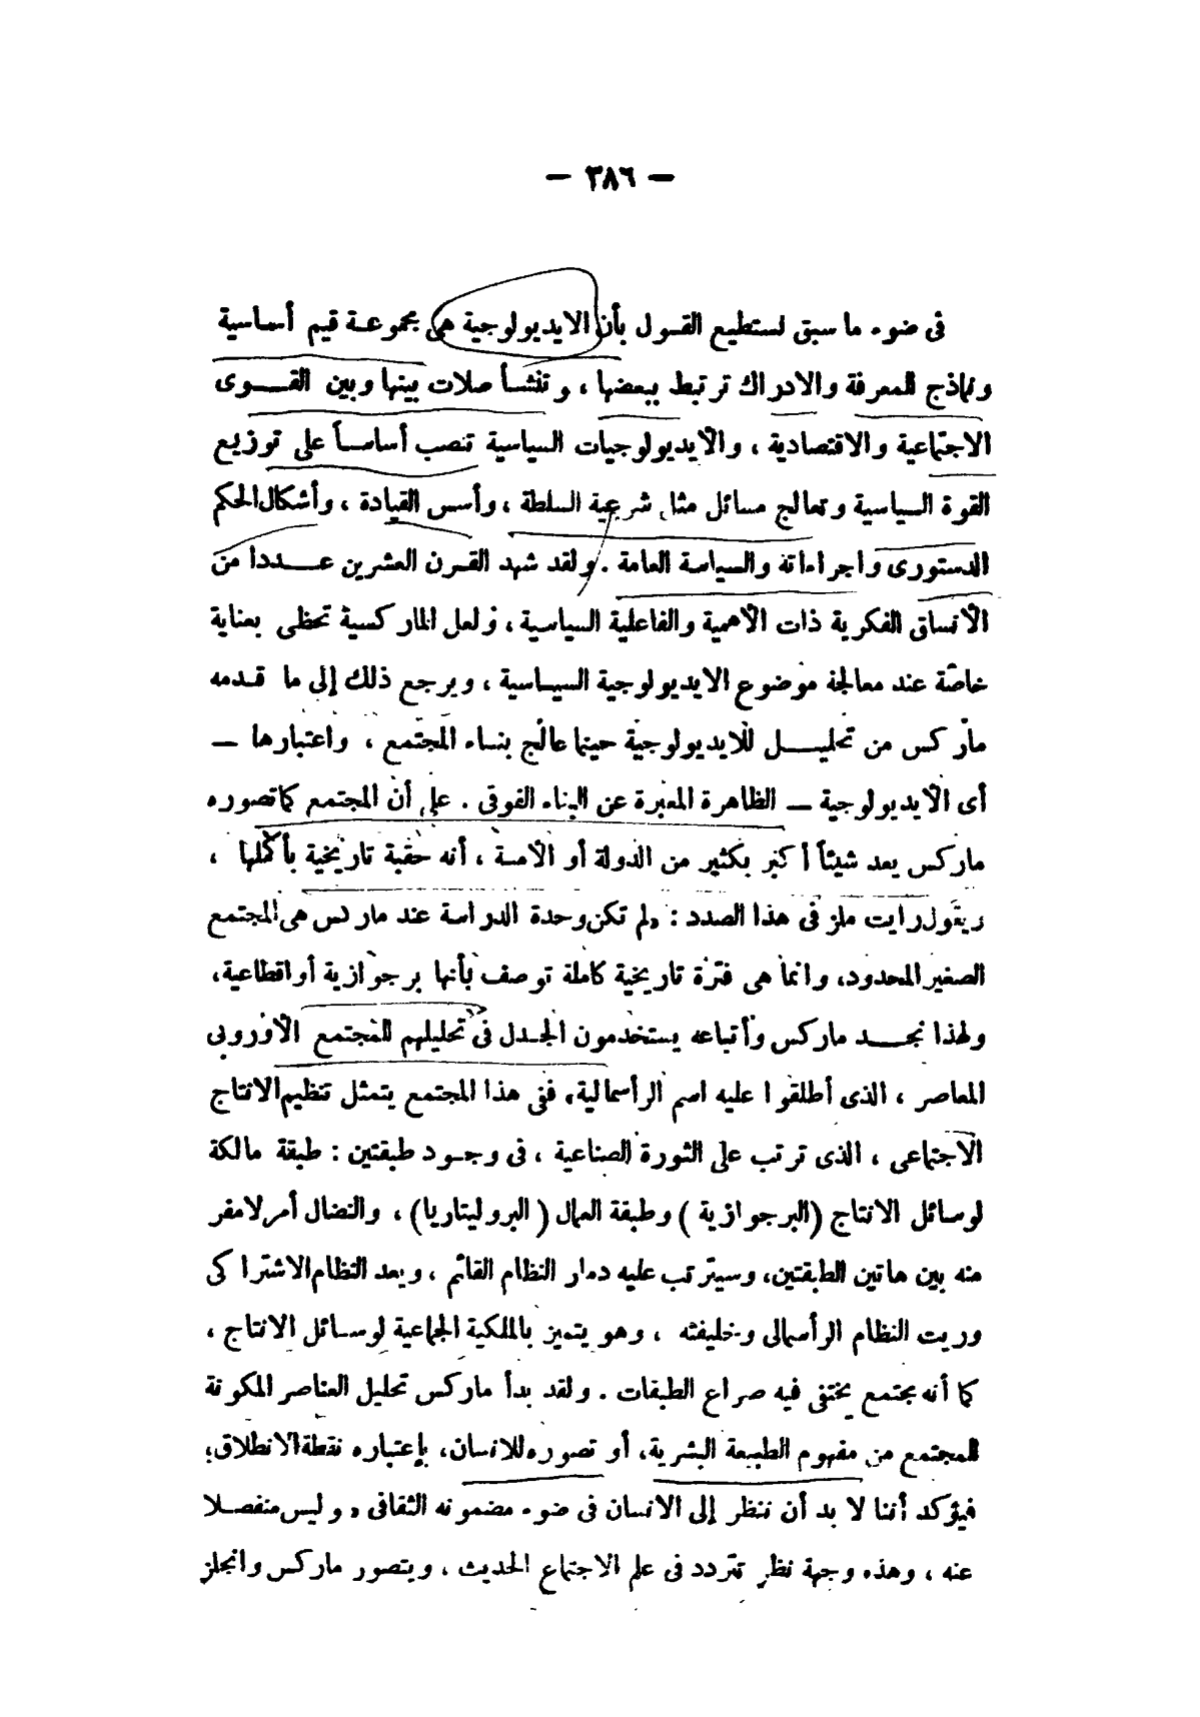 — ٣٨٦ —
فى ضوء ما سبق نستطيع القول بأن الايديولوجية هى مجموعة قيم أساسية
ونماذج للمعرفة والادراك ترتبط ببعضها ، وتنشأ صلات بينها وبين القوى
الاجتماعية والاقتصادية ، والأيديولوجيات السياسية تنصب أساساً على توزيع
القوة السياسية وتعالج مسائل مثل شرعية السلطة ، وأسس القيادة ، وأشكال الحكم
الدستورى واجراءاته والسياسة العامة . ولقد شهد القرن العشرين عددا من
الأنساق الفكرية ذات الأهمية والفاعلية السياسية ، ولعل الماركسية تحظى بعناية
خاصة عند معالجة موضوع الايديولوجية السياسية ، ويرجع ذلك إلى ما قدمه
ماركس من تحليل للايديولوجية حينما عالج بناء المجتمع ، واعتبارها —
أى الأيديولوجية — الظاهرة المعبرة عن البناء الفوقى . على أن المجتمع كما تصوره
ماركس يعد شيئاً أكبر بكثير من الدولة أو الأمة ، أنه حقبة تاريخية بأكملها ،
ويقول رايت ملز فى هذا الصدد : «لم تكن وحدة الدراسة عند ماركس هى المجتمع
الصغير المحدود، وانما هى فترة تاريخية كاملة توصف بأنها برجوازية أو اقطاعية،
ولهذا نجد ماركس وأتباعه يستخدمون الجدل فى تحليلهم للمجتمع الأوروبى
المعاصر ، الذى أطلقوا عليه اسم الرأسمالية، ففى هذا المجتمع يتمثل تنظيم الانتاج
الاجتماعى ، الذى ترتب على الثورة الصناعية ، فى وجود طبقتين : طبقة مالكة
لوسائل الانتاج (البرجوازية ) وطبقة العمال ( البروليتاريا) ، والنضال أمر لامفر
منه بين هاتين الطبقتين، وسيترتب عليه دمار النظام القائم ، ويعد النظام الاشتراكى
وريث النظام الرأسمالى وخليفته ، وهو يتميز بالملكية الجماعية لوسائل الانتاج ،
كما أنه مجتمع يختفى فيه صراع الطبقات . ولقد بدأ ماركس تحليل العناصر المكونة
للمجتمع من مفهوم الطبيعة البشرية، أو تصوره للانسان، بإعتباره نقطة الانطلاق؛
فيؤكد أننا لا بد أن ننظر إلى الانسان فى ضوء مضمونه الثقافى ، وليس منفصلا
عنه ، وهذه وجهة نظر تتردد فى علم الاجتماع الحديث ، ويتصور ماركس وانجلز